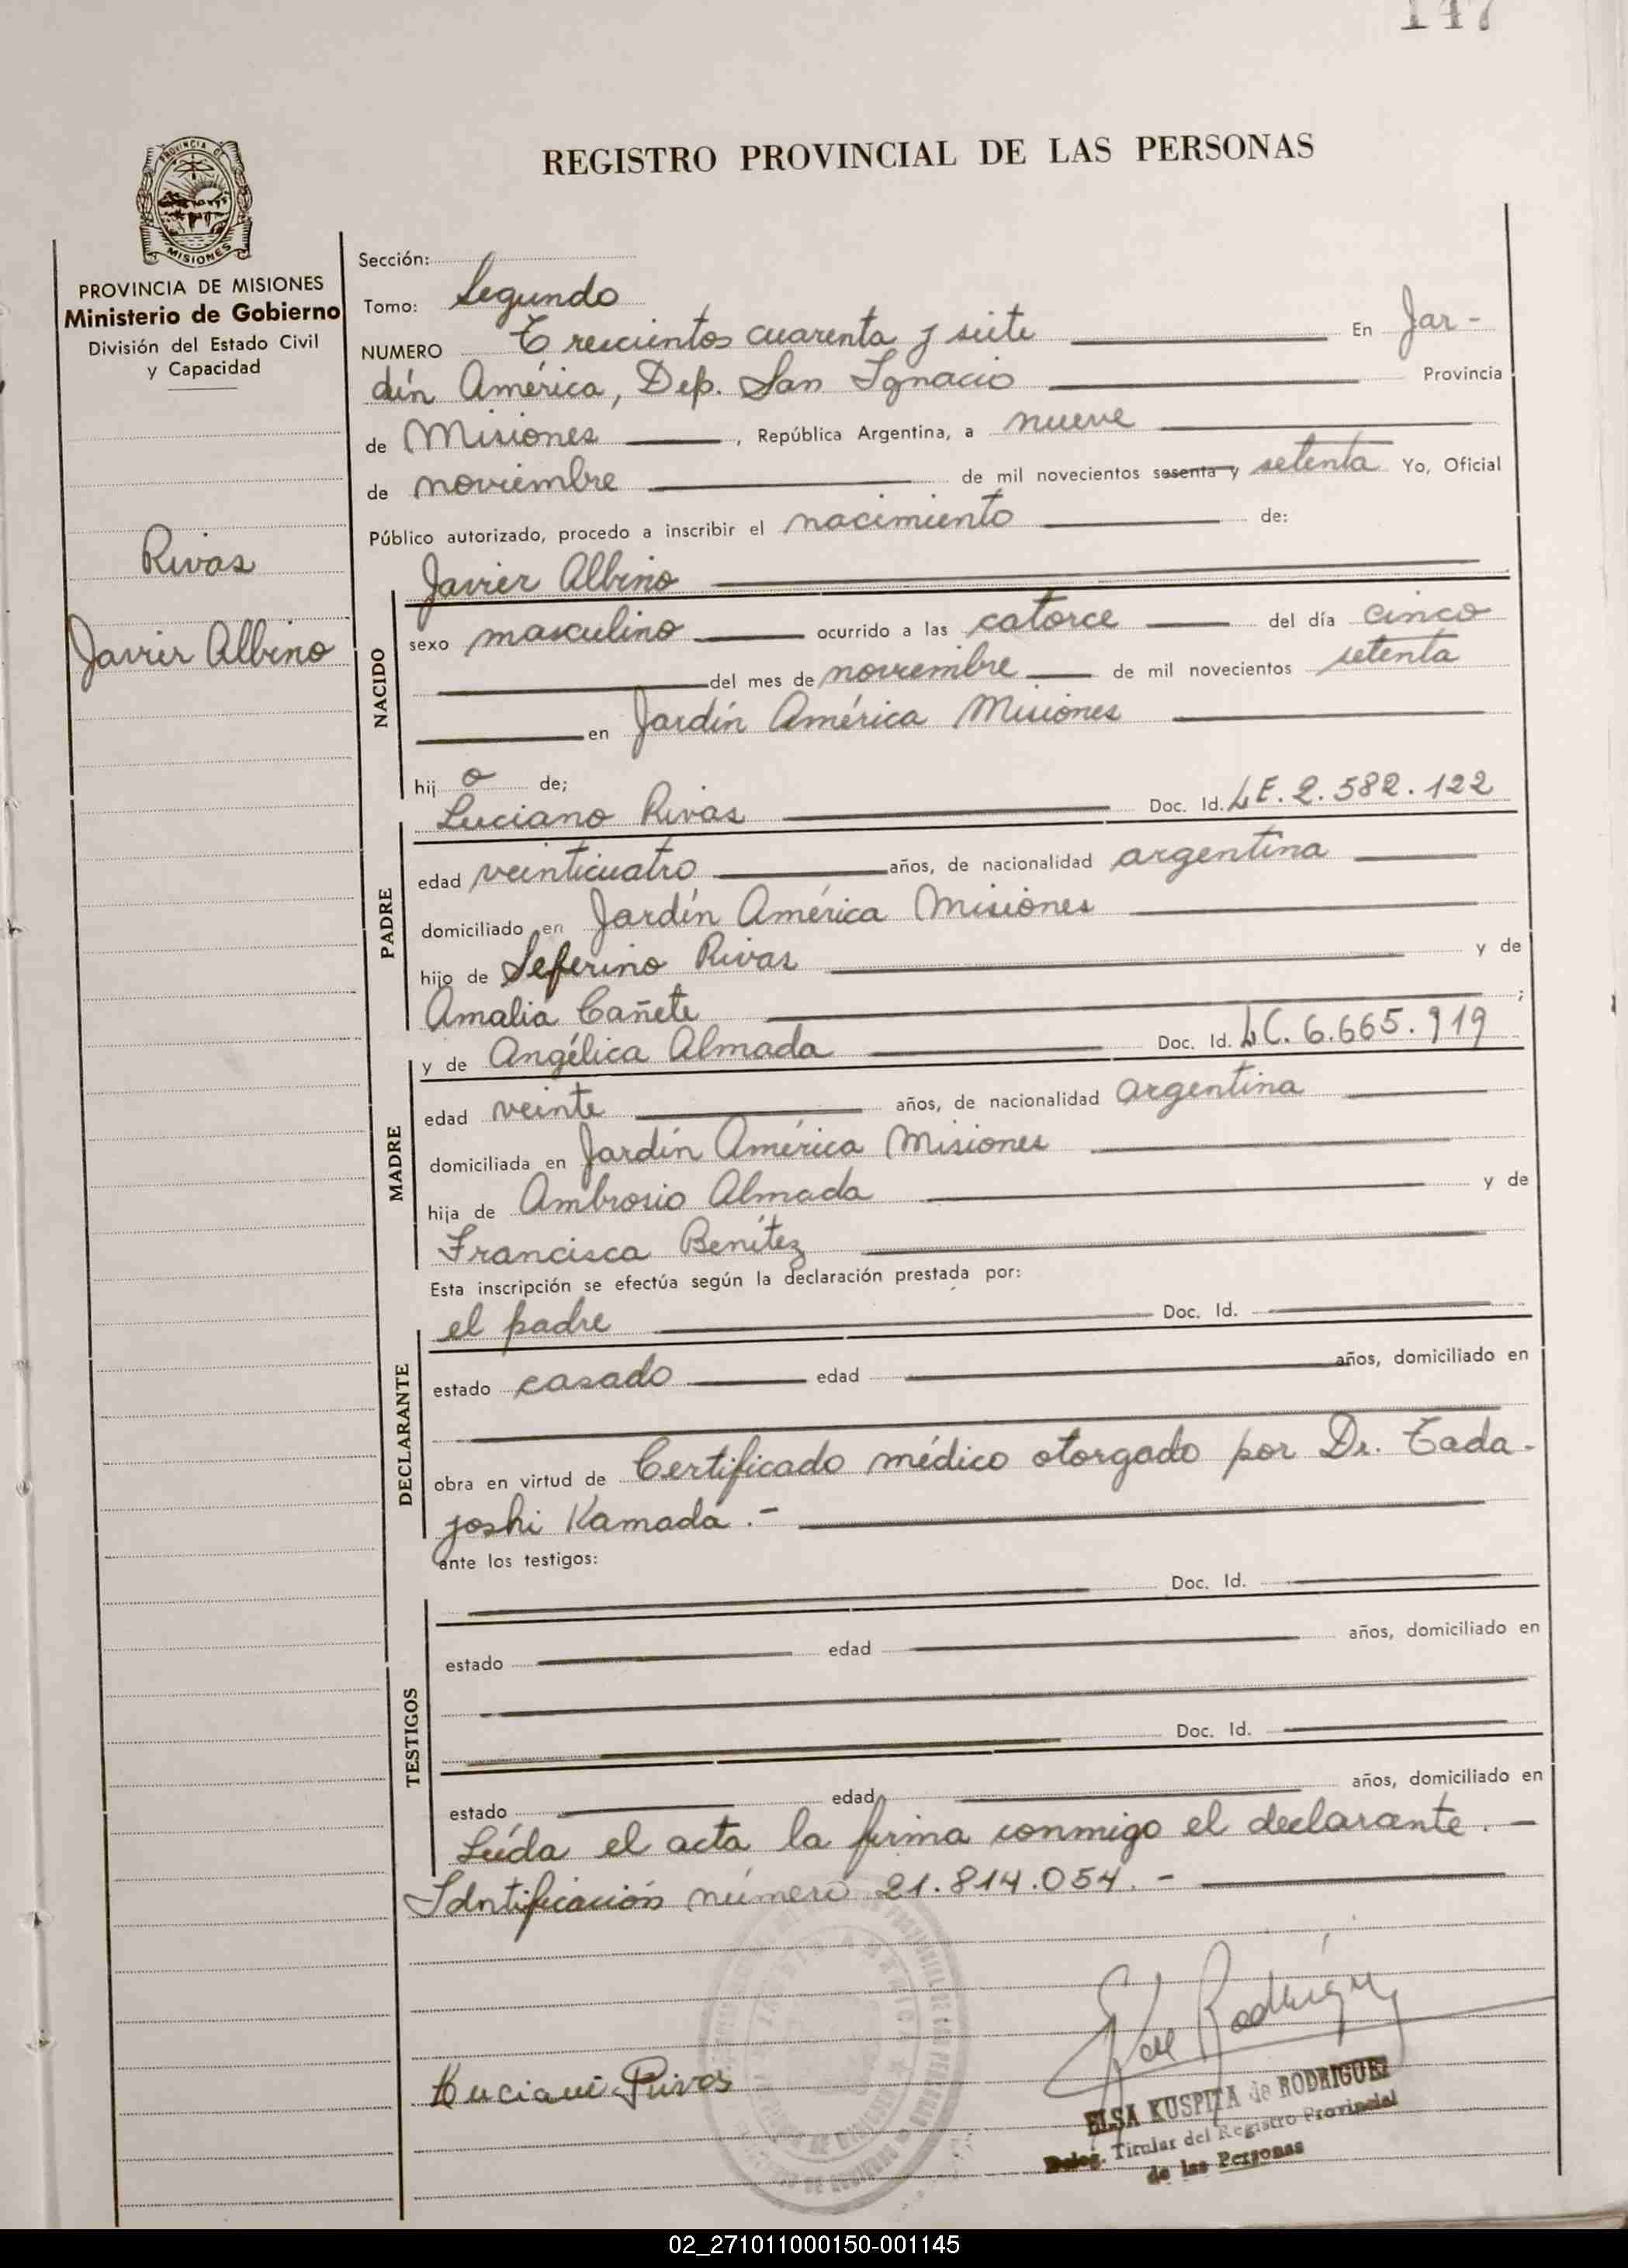 147
REGISTRO PROVINCIAL DE LAS PERSONAS
PROVINCIA DE MISIONES
Ministerio de Gobierno
División del Estado Civil
y Capacidad
Rivas
Javier Albino
Sección:
Tomo: Segundo
NUMERO Trescientos cuarenta y siete En Jar-
dín América, Dep. San Ignacio Provincia
de Misiones, República Argentina, a nueve
de noviembre de mil novecientos sesenta y setenta Yo, Oficial
Público autorizado, procedo a inscribir el nacimiento de:
Javier Albino
NACIDO
sexo masculino ocurrido a las catorce del día cinco
del mes de noviembre de mil novecientos setenta
en Jardín América Misiones
hijo de;
Luciano Rivas Doc. Id. LE. 2.582.122
PADRE
edad veinticuatro años, de nacionalidad argentina
domiciliado en Jardín América Misiones
hijo de Seferino Rivas y de
Amalia Cañete ;
y de Angélica Almada Doc. Id. LC. 6.665.919
MADRE
edad veinte años, de nacionalidad argentina
domiciliada en Jardín América Misiones
hija de Ambrosio Almada y de
Francisca Benítez
Esta inscripción se efectúa según la declaración prestada por:
el padre Doc. Id.
DECLARANTE
estado casado edad años, domiciliado en
obra en virtud de Certificado médico otorgado por Dr. Tada-
yoshi Kamada.-
ante los testigos:
Doc. Id.
TESTIGOS
estado edad años, domiciliado en
Doc. Id.
estado edad años, domiciliado en
Leída el acta la firma conmigo el declarante.-
Idntificación número 21.814.054.-
ELSA KUSPITA de RODRIGUEZ
Deleg. Titular del Registro Provincial
de las Personas
02_271011000150-001145